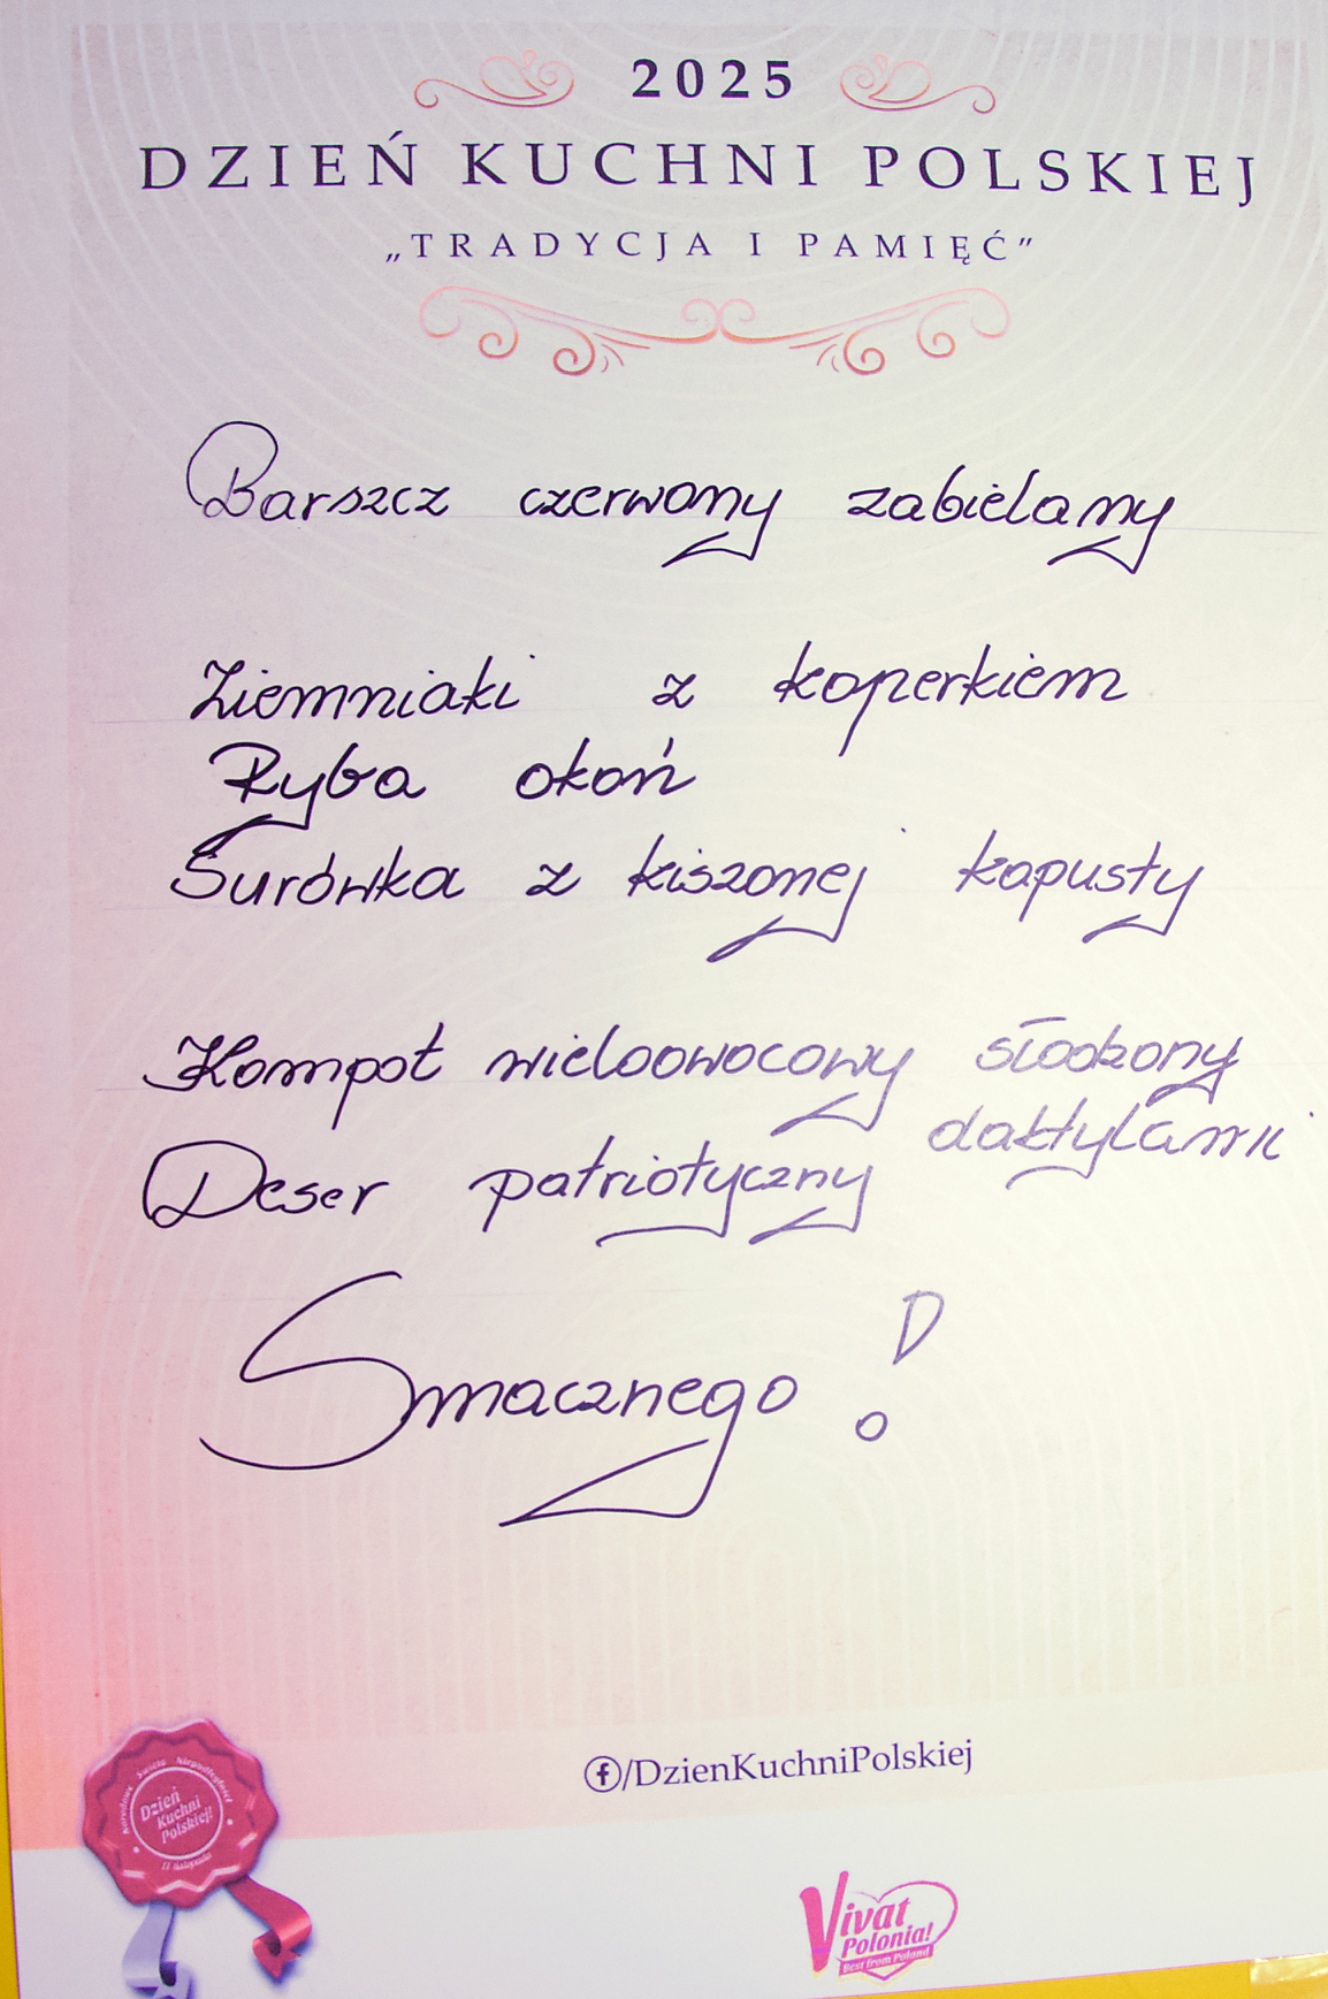 2025
DZIEŃ KUCHNI POLSKIEJ
„TRADYCJA I PAMIĘĆ”
Barszcz czerwony zabielany
Ziemniaki z koperkiem
Ryba okoń
Surówka z kiszonej kapusty
Kompot wieloowocowy słodzony
daktylami
Deser patriotyczny
Smacznego!
/DzienKuchniPolskiej
Narodowe Święto Niepodległości
Dzień
Kuchni
Polskiej!
11 listopada
Vivat
Polonia!
Best from Poland